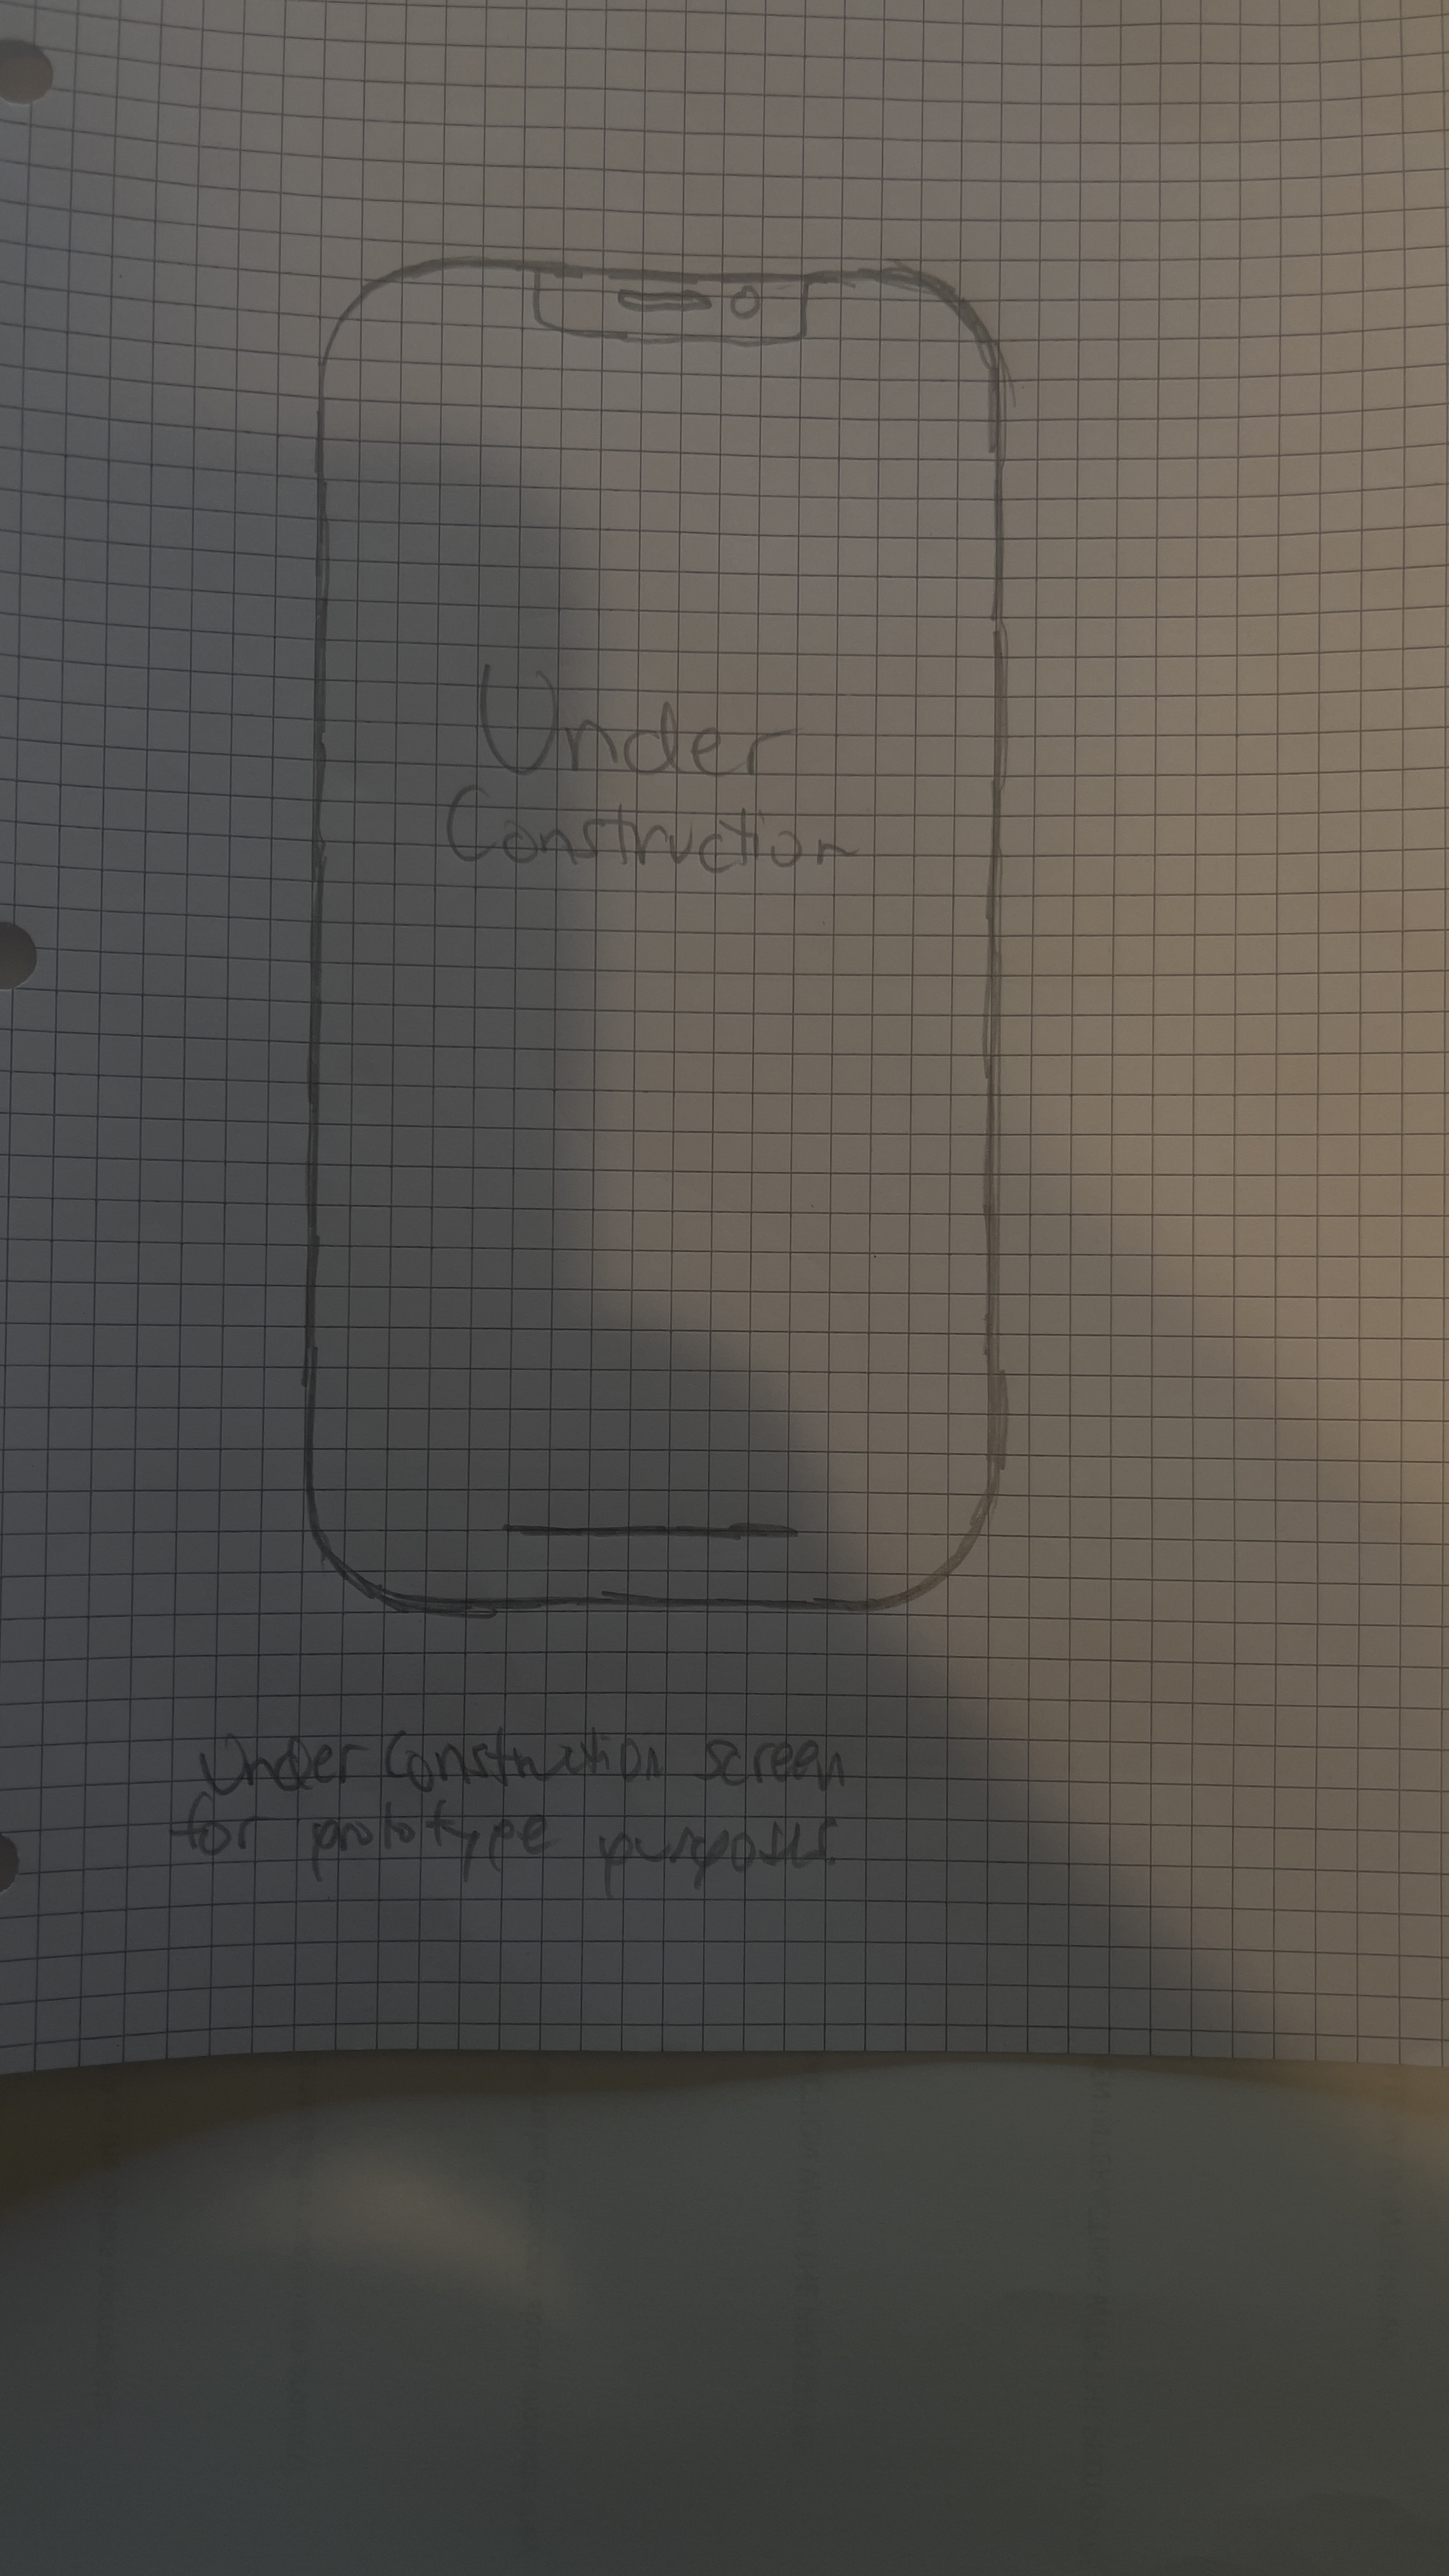 Under
Construction
Under Construction screen
for prototype purposes.